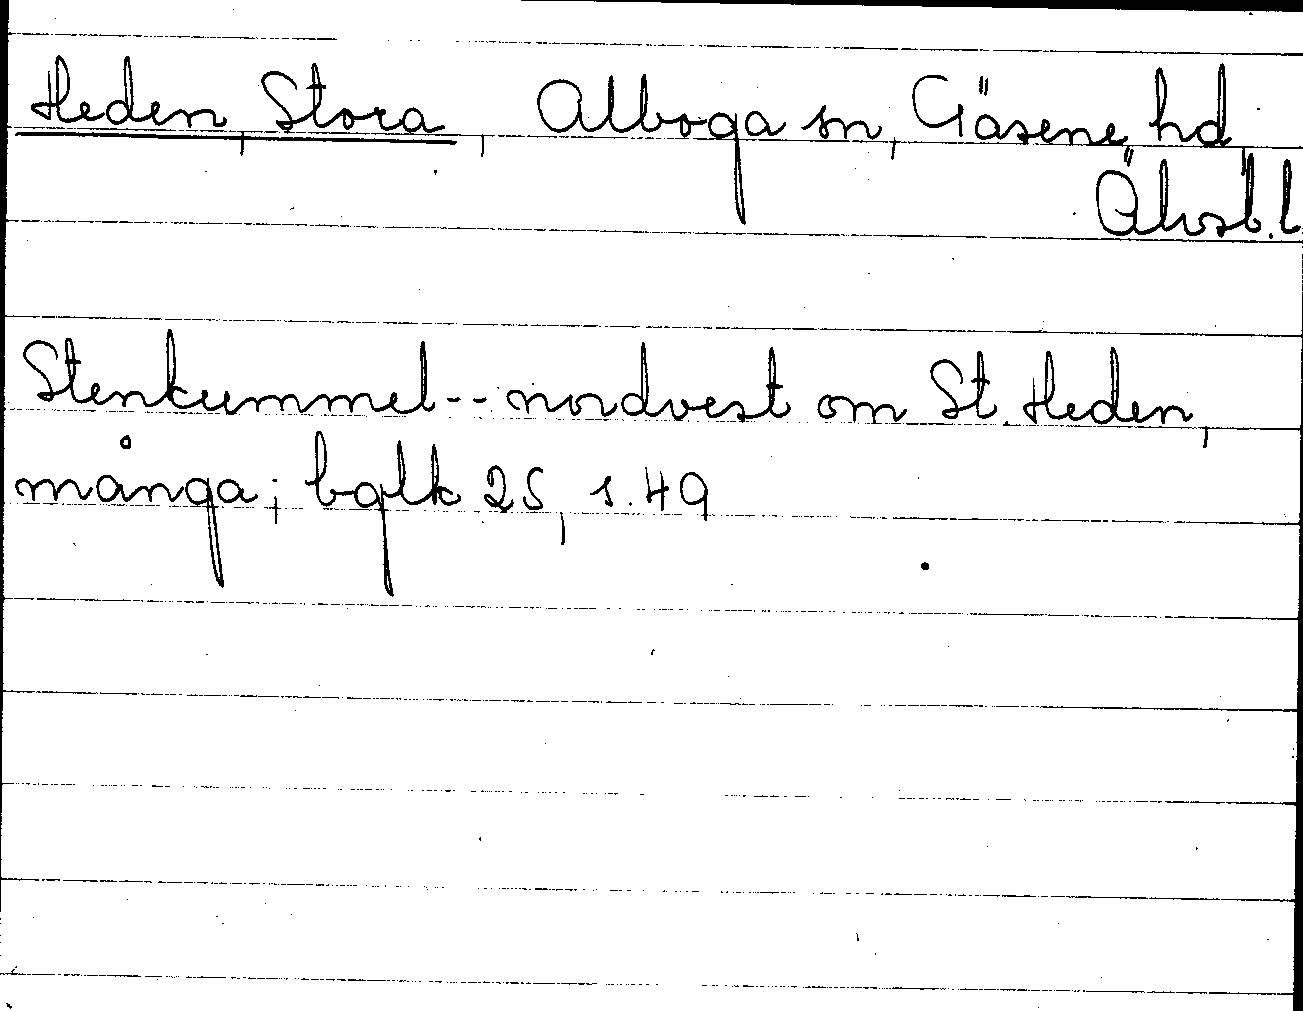 Heden, Stora, Alboga sn, Gäsene hd,
Älvsb.l
Stenkummel -- nordvest om St. Heden,
många; bglk 25, s.49